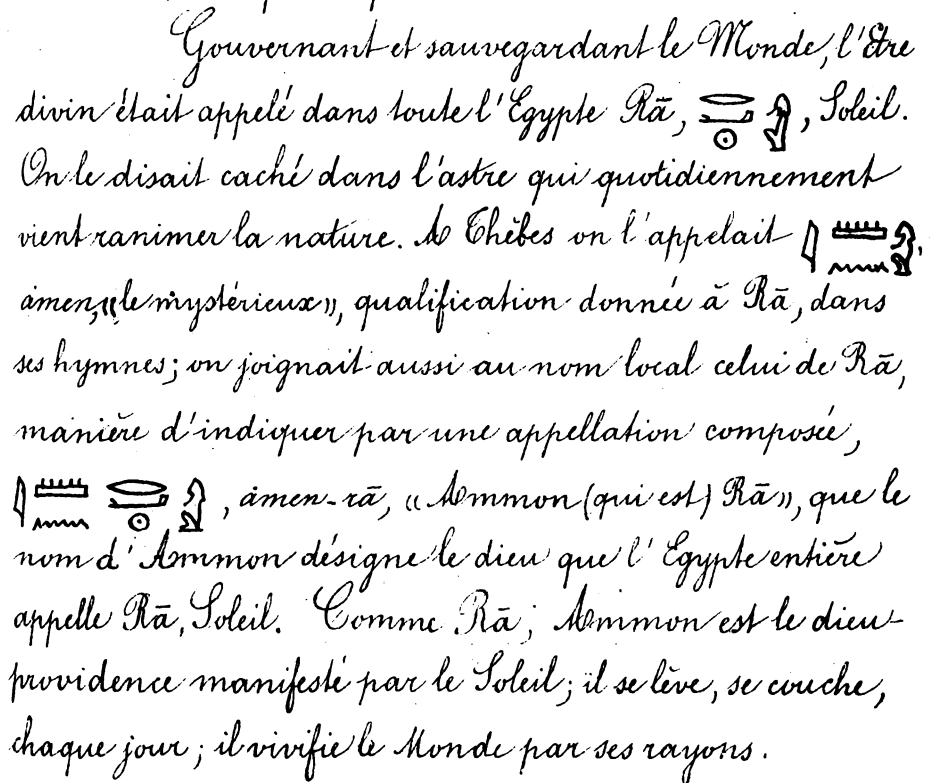 Gouvernant et sauvegardant le Monde, l'Être
divin était appelé dans toute l'Egypte Rā, 𓂋𓂝𓇳𓀭, Soleil.
On le disait caché dans l'astre qui quotidiennement
vient ranimer la nature. A Thèbes on l'appelait 𓇋𓏠𓈖𓀭,
åmen, «le mystérieux», qualification donnée à Rā, dans
ses hymnes; on joignait aussi au nom local celui de Rā,
manière d'indiquer par une appellation composée,
𓇋𓏠𓈖𓂋𓂝𓇳𓀭, åmen-rā, «Ammon (qui est) Rā», que le
nom d'Ammon désigne le dieu que l'Egypte entière
appelle Rā, Soleil. Comme Rā, Ammon est le dieu-
providence manifesté par le Soleil; il se lève, se couche,
chaque jour; il vivifie le Monde par ses rayons.